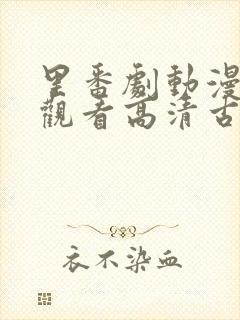 里番劇動漫
觀看高清古
衣不染血